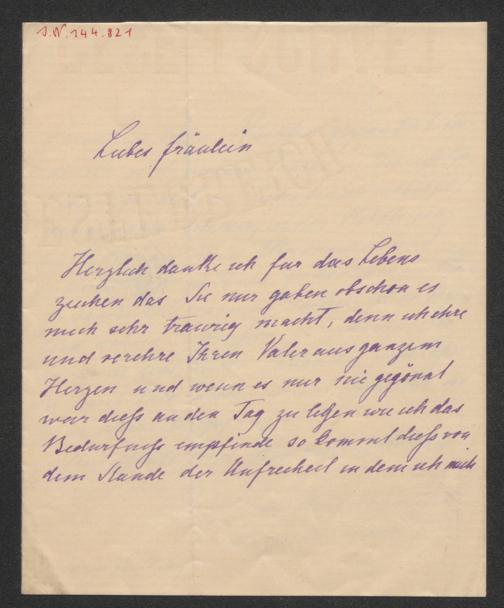 J.N. 144.821
Liebes Fräulein
Herzlich danke ich für das Lebens
zeichen das Sie mir gaben obschon es
mich sehr traurig macht, denn ich ehre
und verehre Ihren Vater aus ganzem
Herzen und wenn es mir nie gegönnt
war diess an den Tag zu legen wie ich das
Bedürfniss empfinde so kommt diess von
dem Stande der in dem ich mich